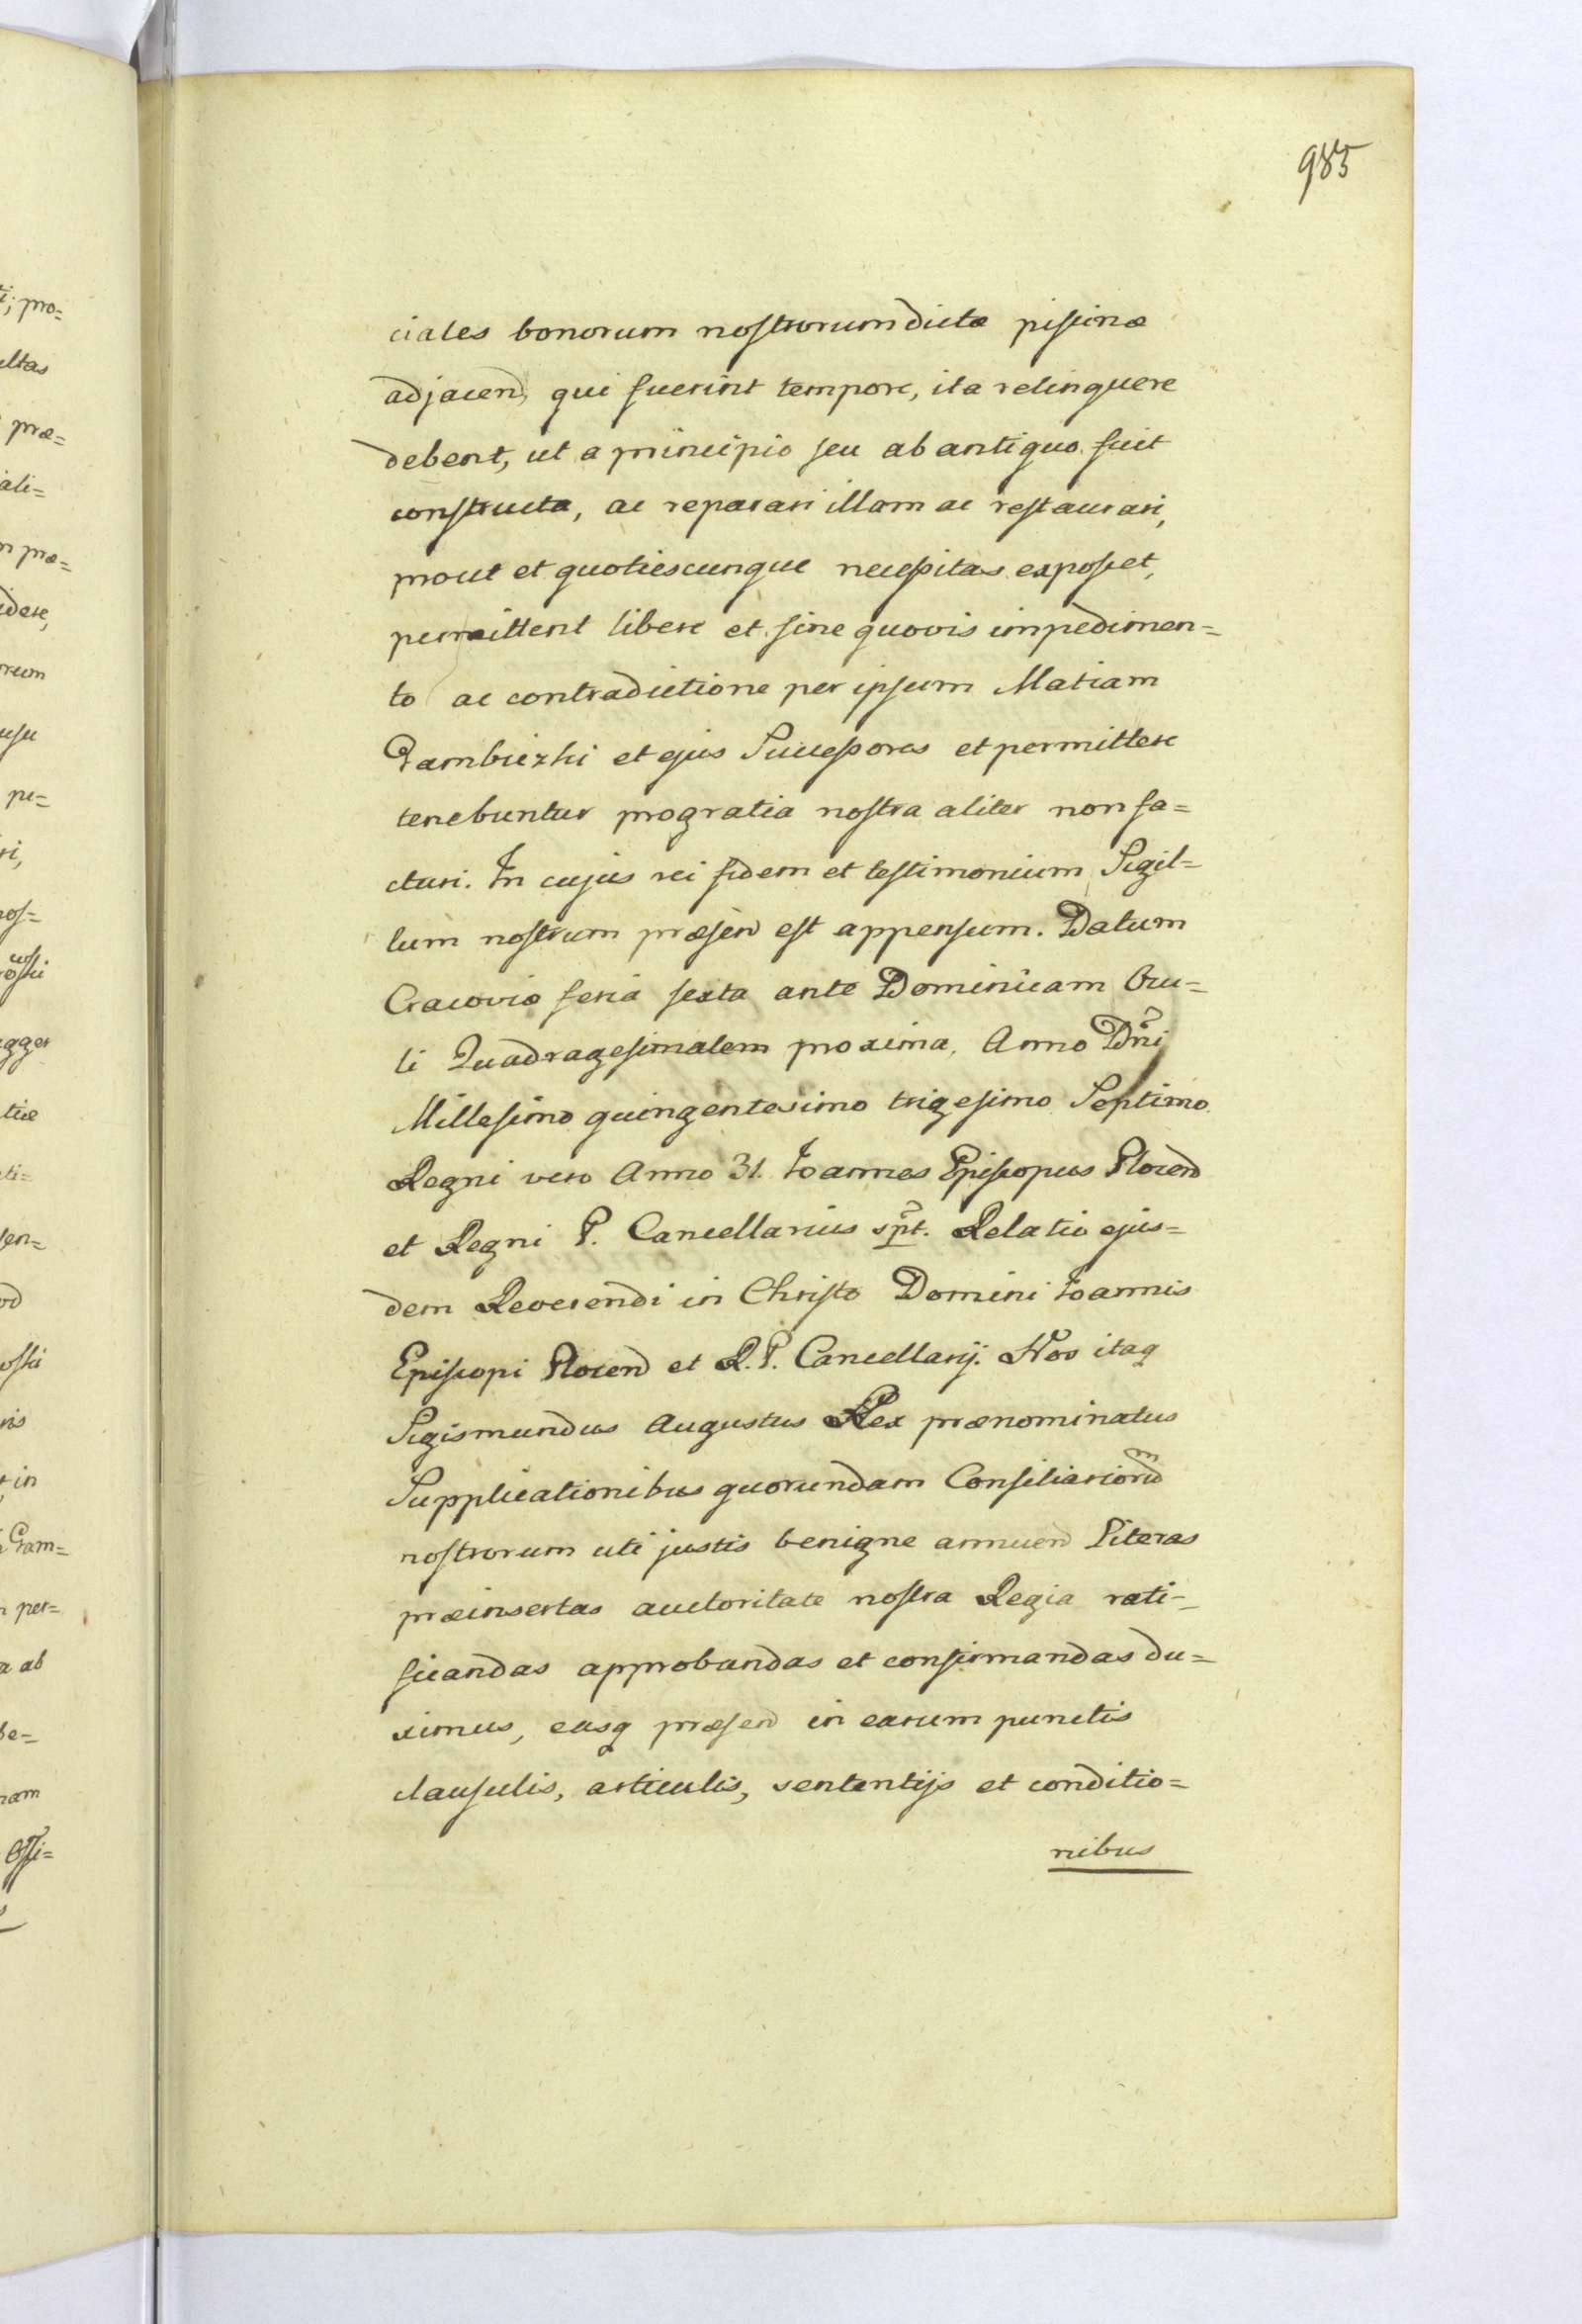 985
ciales bonorum nostrorum dictæ piscinæ
adjacend, qui fuerint tempore, ita relinquere
debent, ut a principio seu ab antiquo fuit
constructa, ac reparari illam ac restaurari,
prout et quotiescunque necessitas exposcet,
permittent libere et sine quovis impedimen=
to ac contradictione per ipsum Matiam
Gambiczki et ejus Successores et permittere
tenebuntur pro gratia nostra aliter non fa=
cturi. In cujus rei fidem et testimonium Sigil=
lum nostrum præsend est appensum. Datum
Cracoviæ feria sexta ante Dominicam Ocu=
li Quadragesimalem proxima, Anno Dni
Millesimo quingentesimo trigesimo Septimo
Regni vero Anno 31. Joannes Episcopus Plocend
et Regni P. Cancellarius spt. Relatio ejus=
dem Reverendi in Christo Domini Joannis
Episcopi Plocend et R. P. Cancellarij. Nos itaq
Sigismundus Augustus Rex prænominatus
Supplicationibus quorundam Consiliariorum
nostrorum uti justis benigne annuend Literas
præinsertas auctoritate nostra Regia rati=
ficandas approbandas et confirmandas du=
ximus, easq præsend in earum punctis
clausulis, articulis, sententijs et conditio=
nibus
ti; pro=
ultas
præ=
ali=
n præ=
idere,
orum
usu
pe=
ri,
nos=
agger
tiæ
ti=
den=
od
ris
t in
Gam=
n per=
a ab
be=
nam
Offi=